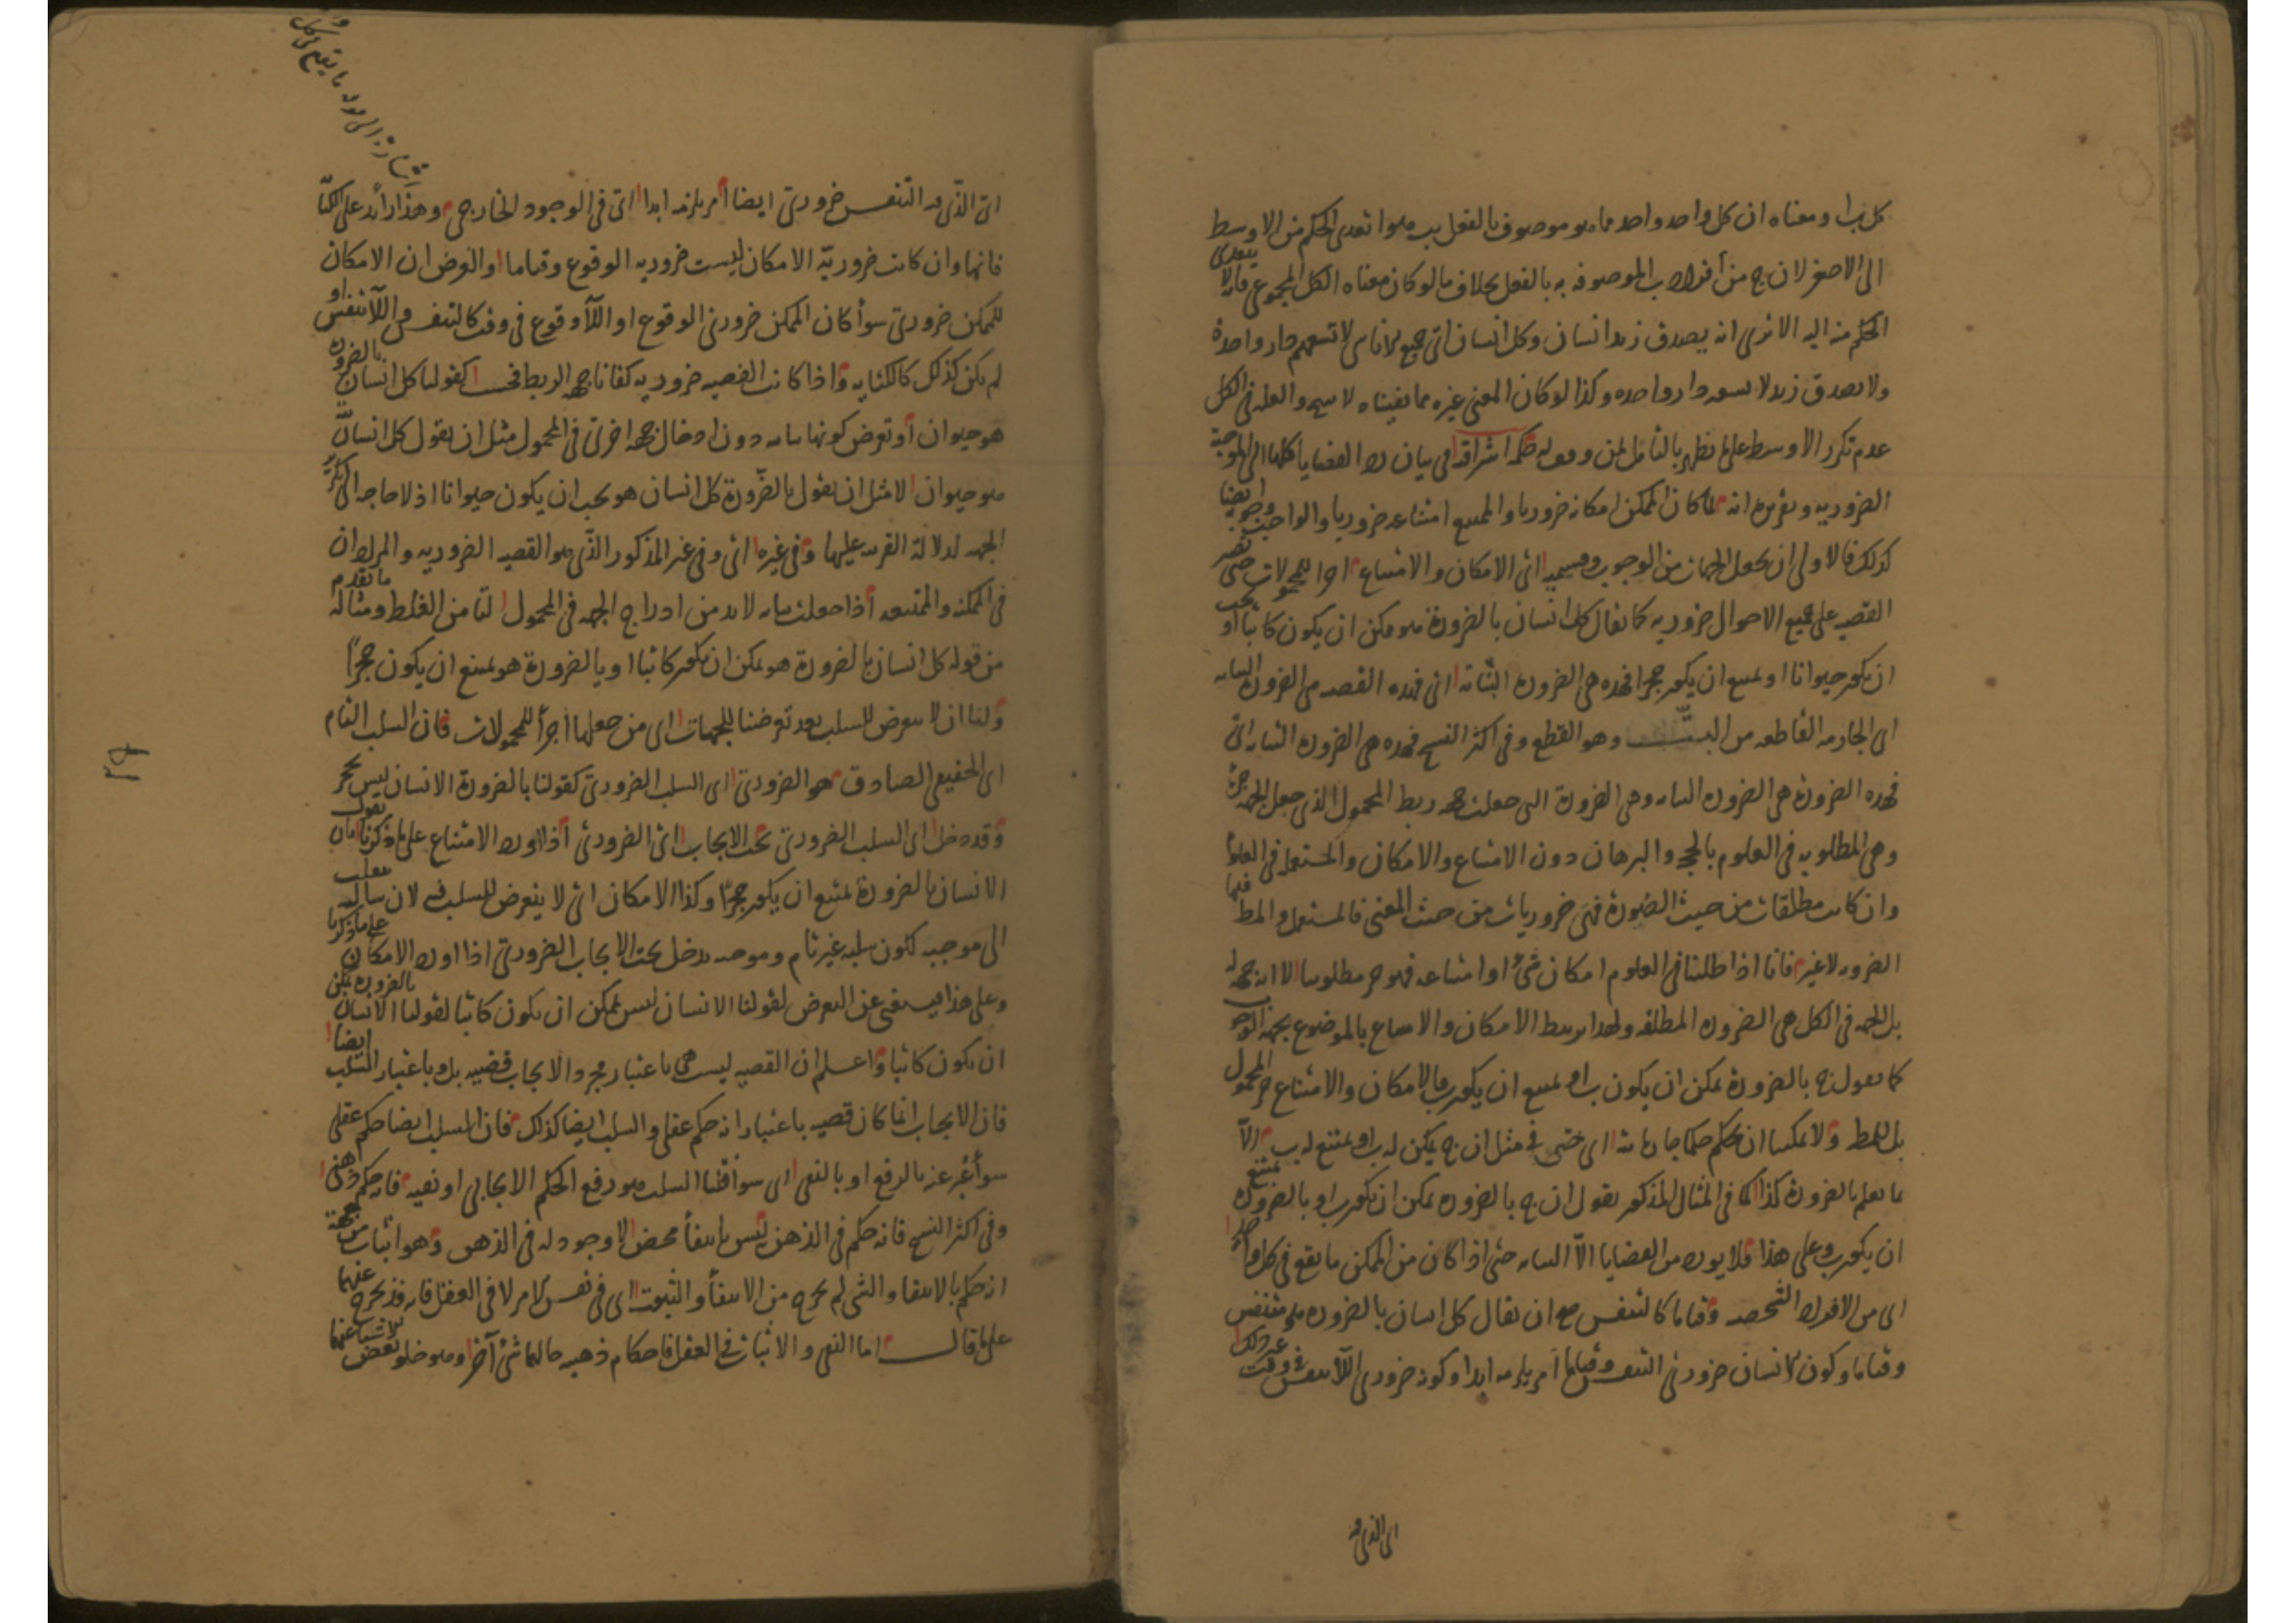 كل ب ا ومعناه ان كل واحد واحد مما هو موصوف بالفعل ب هو ا تعدى الحكم من الاوسط
الى الاصغر لان ج من أفراد ب الموصوفه به بالفعل بخلاف ما لو كان معناه الكل المجموعى فانه لا يتعدى
الحكم منه اليه الا ترى انه يصدق زيد انسان وكل انسان اى جميع الاناس لا تسعهم دار واحدة
ولا يصدق زيد لا يسعه دار واحده وكذا لو كان المعنى غيره مما نفيناه لا ينتج والعله فى الكل
عدم تكرر الاوسط على ما يظهر بالتأمل لمن وفق له حكمه اشراقيه فى بيان رد القضايا كلها الى الموجبة
الضروريه وتقريره انه لما كان الممكن امكانه ضروريا والممتنع امتناعه ضروريا والواجب وجوبه ايضا
كذلك فالاولى ان نجعل الجهات من الوجوب وقسيميه اى الامكان والامتناع اجزا للمحمولات حتى تصير
القضيه على جميع الاحوال ضروريه كما يقال كل انسان بالضرورة هو ممكن ان يكون كاتبا او يجب
ان يكون حيوانا او يمتنع ان يكون حجرا فهذه هى الضرورة البتاتة اى فهذه القضيه هى الضرورة البتاته
اى الجازمه القاطعه من البت وهو القطع وفى اكثر النسخ فهذه هى الضرورة البتاته اى
فهذه الضرورة هى الضرورة البتاته وهى الضرورة التى جعلت جهه ربط المحمول الذى جعل الجهه جزئه
وهى المطلوبه فى العلوم بالحجج والبرهان دون الامتناع والامكان والمستعمله فى العلوم
وان كانت مطلقات من حيث الصورة فهى ضروريات من حيث المعنى فالمستعمل والمط فيها
الضروره لا غير فانا اذا طلبنا فى العلوم امكان شئ او امتناعه فهو جزء مطلوبنا لا انه جهه له
بل الجهه فى الكل هى الضروره المطلقه ولهذا يربط الامكان والامتناع بالموضوع بجهه الوجوب
كما نقول ج بالضرورة يمكن ان يكون ب او يمتنع ان يكون ب فالامكان والامتناع جزء المحمول
بل المط ولا يمكننا ان نحكم حكما جازما بته اى حتى فى مثل ان ج يمكن له ب او يمتنع له ب الّا
بما نعلم بالضرورة كذا كما فى المثال المذكور نقول ان ج بالضروره يمكن ان يكون ب او بالضروره يمتنع
ان يكون ب وعلى هذا فلا يورد من القضايا الّا البتاته حتى اذا كان من الممكن ما يقع فى كل واحد
اى من الافراد الشخصيه وقتا ما كالتنفس صح ان يقال كل انسان بالضروره هو متنفس
وقتا ما وكون الانسان ضرورى التنفس وقتا ما أمر يلزمه ابدا وكونه ضرورى اللاتنفس فى وقت غير ذلك
اى الذى فيه
اى الذى فيه التنفس ضرورى ايضا أمر يلزمه ابدا اى فى الوجود الخارجى وهذا زائد على الكتابة
فانها وان كانت ضروريّة الامكان ليست ضروريه الوقوع وقتا ما والغرض ان الامكان
للممكن ضرورى سوأ كان الممكن ضرورى الوقوع او اللّاوقوع فى وقت كالتنفس واللّاتنفس او
لم يكن كذلك كالكتابه واذا كانت القضيه ضروريه كفانا جهه الربط فحسب كقولنا كل انسان بالضروره
هو حيوان أو تعرض كونها بتاته دون ادخال جهه اخرى فى المحمول مثل ان يقول كل انسان بتّة
هو حيوان لا مثل ان يقول بالضّرورة كل انسان هو يجب ان يكون حيوانا اذ لا حاجه الى تكرير
الجهه لدلالة القرينه عليها وفى غيرها اى وفى غير المذكور الذّى هو القضيه الضروريه والمراد ان
فى الممكنه والممتنعه أذا جعلت بتاته لا بد من ادراج الجهه فى المحمول لتأمن الغلط ومثاله ما تقدم
من قوله كل انسان بالضرورة هو يمكن ان يكون كاتبا او بالضرورة هو يمتنع ان يكون حجرًا
ولنا ان لا نتعرض للسلب بعد تعرضنا للجهات اى من جعلها أجزأ للمحمولات فان السلب التام
اى الحقيقى الصادق هو الضرورى اى السلب الضرورى كقولنا بالضرورة الانسان ليس بحجر
وقد دخل اى السلب الضرورى تحت الايجاب اى الضرورى أذا اورد الامتناع على ما ذكرنا بان نقول
الانسان بالضرورة يمتنع ان يكون حجرًا وكذا الامكان اى لا يتعرض للسلب فيه لان سالبه تنقلب
الى موجبه لكون سلبه غير تام وموجبه يدخل تحت الايجاب الضرورى اذا اورد الامكان على ما ذكرنا
وعلى هذا فيستغنى عن التعرض لقولنا الانسان ليس يمكن ان يكون كاتبا لقولنا الانسان بالضروره يمكن
ان يكون كاتبا واعلم ان القضيه ليست هى باعتبار مجرد الايجاب قضيه بل وباعتبار السّلب ايضا
فان الايجاب انما كان قضيه باعتبار انه حكم عقلى والسلب ايضا كذلك فان السلب ايضا حكم عقلى
سوأ عُبر عنه بالرفع او بالنفى اى سوأ قلنا السلب هو رفع الحكم الايجابى او نفيه فانه حكم ذهنى
وفى اكثر النسخ فانه حكم فى الذهن ليس بانتفأ محض لا وجود له فى الذهن وهو اثبات من جهة
انه حكم بالانتفا والشى لم يخرج من الانتفأ والثبوت اى فى نفس الامر لا فى العقل فانه قد يخرج عنهما
على ما قال اما النفى والاثبات فى العقل فاحكام ذهنيه حالهما شئ آخر وهو خلو بعض الاشيا عنهما
اشارة الى قوله ما يقع فى كل واحد